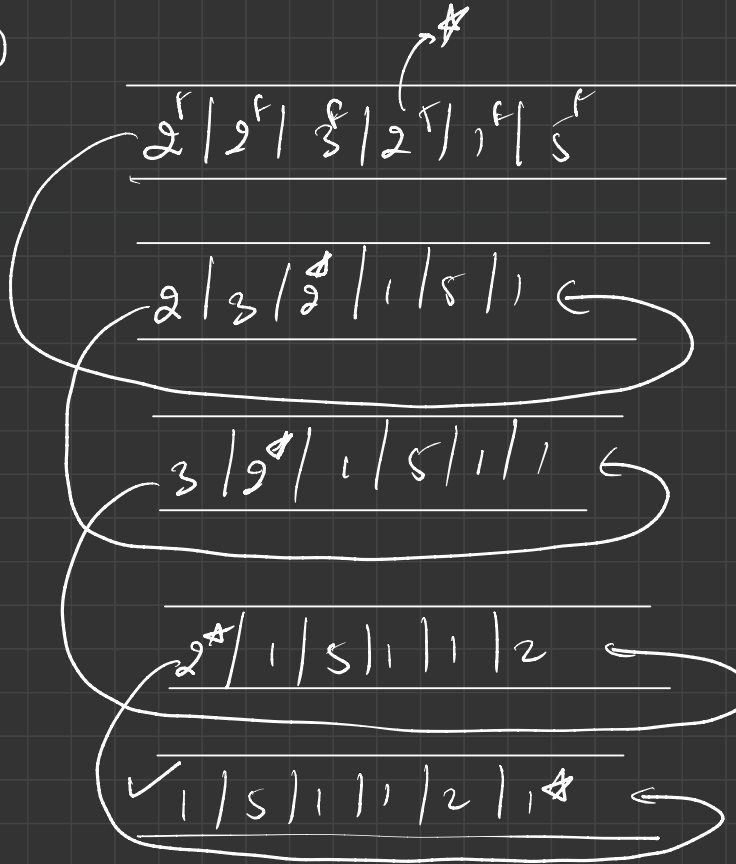 )
☆
2ᶠ | 2ᶠ | 3ᶠ | 2ᵀ | 1ᶠ | 5ᶠ
2 | 3 | 2☆ | 1 | 5 | 1
3 | 2☆ | 1 | 5 | 1 | 1
2☆ | 1 | 5 | 1 | 1 | 2
✓ 1 | 5 | 1 | 1 | 2 | 1☆